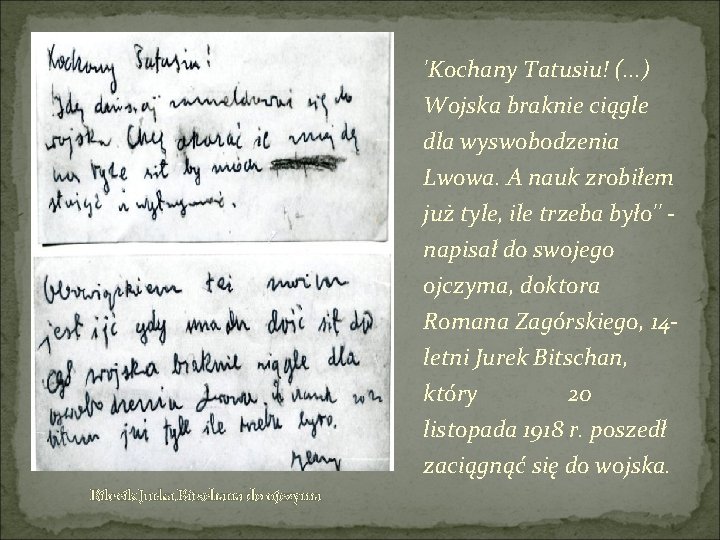 Kochany Tatusiu!
Idę dzisiaj zameldować się do
wojska. Chcę okazać że znajdę
na tyle sił by módz
służyć i wytrzymać.
Obowiązkiem też moim
jest iść gdy mam dość sił do
wojska braknie ciągle dla
oswobodzenia Lwowa. Z nauk zro
biłem już tyle ile trzeba było.
Jerzy
'Kochany Tatusiu! (...)
Wojska braknie ciągle
dla wyswobodzenia
Lwowa. A nauk zrobiłem
już tyle, ile trzeba było" -
napisał do swojego
ojczyma, doktora
Romana Zagórskiego, 14-
letni Jurek Bitschan,
który 20
listopada 1918 r. poszedł
zaciągnąć się do wojska.
Bilecik Jurka Bitschana do ojczyma